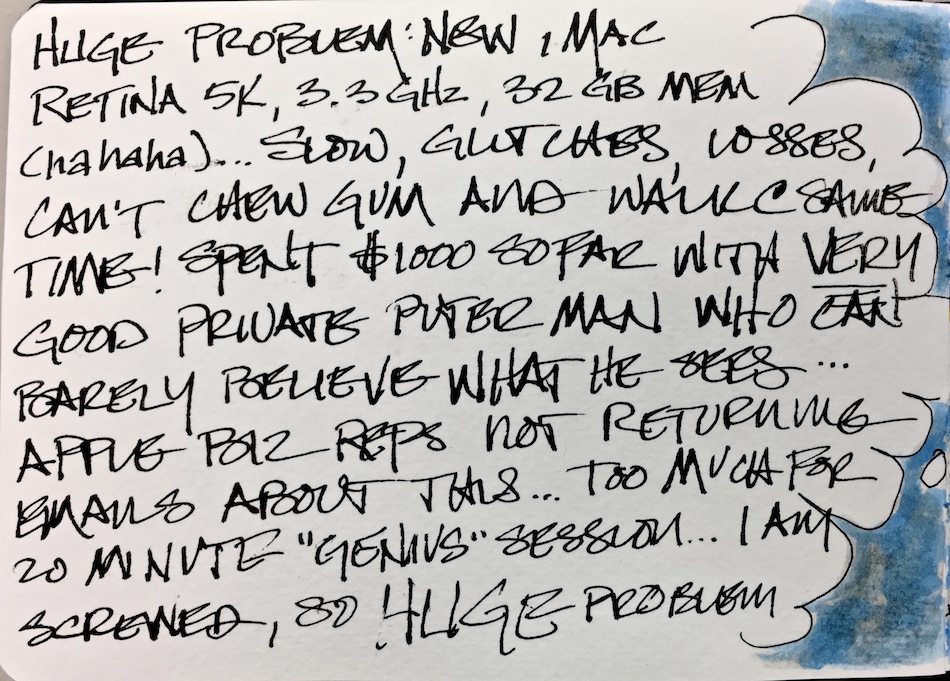 HUGE PROBLEM: NEW iMAC
RETINA 5K, 3.3 GHz, 32 GB MEM
(hahaha)... SLOW, GLITCHES, LOSSES,
CAN'T CHEW GUM AND WALK C SAME
TIME! SPENT $1000 SO FAR WITH VERY
GOOD PRIVATE PUTER MAN WHO CAN
BARELY BELIEVE WHAT HE SEES...
APPLE BIZ REPS NOT RETURNING
EMAILS ABOUT THIS... TOO MUCH FOR
20 MINUTE "GENIUS" SESSION... I AM
SCREWED, SO HUGE PROBLEM